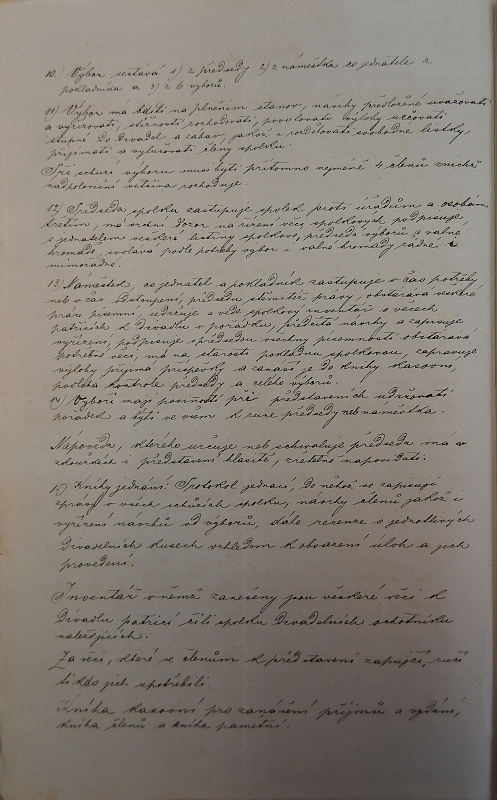 10.) Výbor sestává 1) z předsedy 2) z náměstka co jednatele a
pokladníka a 3) z 6 výborů.
11) Výbor má bdíti na plněním stanov, návrhy předložené uvažovati
a vyřizovati, stížnosti rozhodovati, povolovati výlohy určovati
vstupné do divadel a zábav, jakož i rozdělovati svobodné lístky,
přijímati a vylučovati členy spolku.
Při schůzi výboru musí býti přítomno nejméně 4 členů z nichž
nadpoloviční většina rozhoduje.
12) Předseda spolku zastupuje spolek proti úřadům a osobám
třetím, má vrchní dozor na řízení věcí spolkových podpisuje
s jednatelem veškeré listiny spolkové, předsedá výborů a valné
hromadě, svolává podle potřeby výbor i valné hromady řádné i
mimořádné.
13) Náměstek, co jednatel a pokladník zastupuje v čas potřeby
neb v čas odstoupení, předsedu s týmiž právy, obstarává veškeré
práce písemní, udržuje a vede spolkový inventář o věcech
patřících k divadlu v pořádku, předčítá návrhy a zapisuje
vyřízení, podpisuje s předsedou všechny písemnosti obstarává
potřebné věci, má na starosti pokladnu spolkovou, zapravuje
výlohy přijímá příspěvky a zanáší je do knihy kasovní,
podléhá kontrole předsedy a celého výborů.
14) Výboři mají povinnost při představeních udržovati
pořádek a býti ve všem k ruce předsedy neb náměstka.
Napověda, kterého určuje neb schvaluje předseda má v
zkouškách i představení hlasitě, zřetelně napovídati.
15) Knihy jednání: Protokol jednací, do nehož se zapisují
zprávy o všech schůzích spolku, návrhy členů jakož i
vyřízení návrhů od výborů, dále recenze o jednotlivých
divadelních kusech vzhledem k obsazení úloh a jich
provedení.
Inventář v němž zanešeny jsou veškeré věci k
divadlu patřící čili spolku divadelních ochotníku
náležejících.
Za věci, které se členům k představení zapůjčí, ručí
ti kdo jich upotřebili.
Kniha kasovní pro zanášení příjmů a vydání,
kniha členů a kniha pamětní.